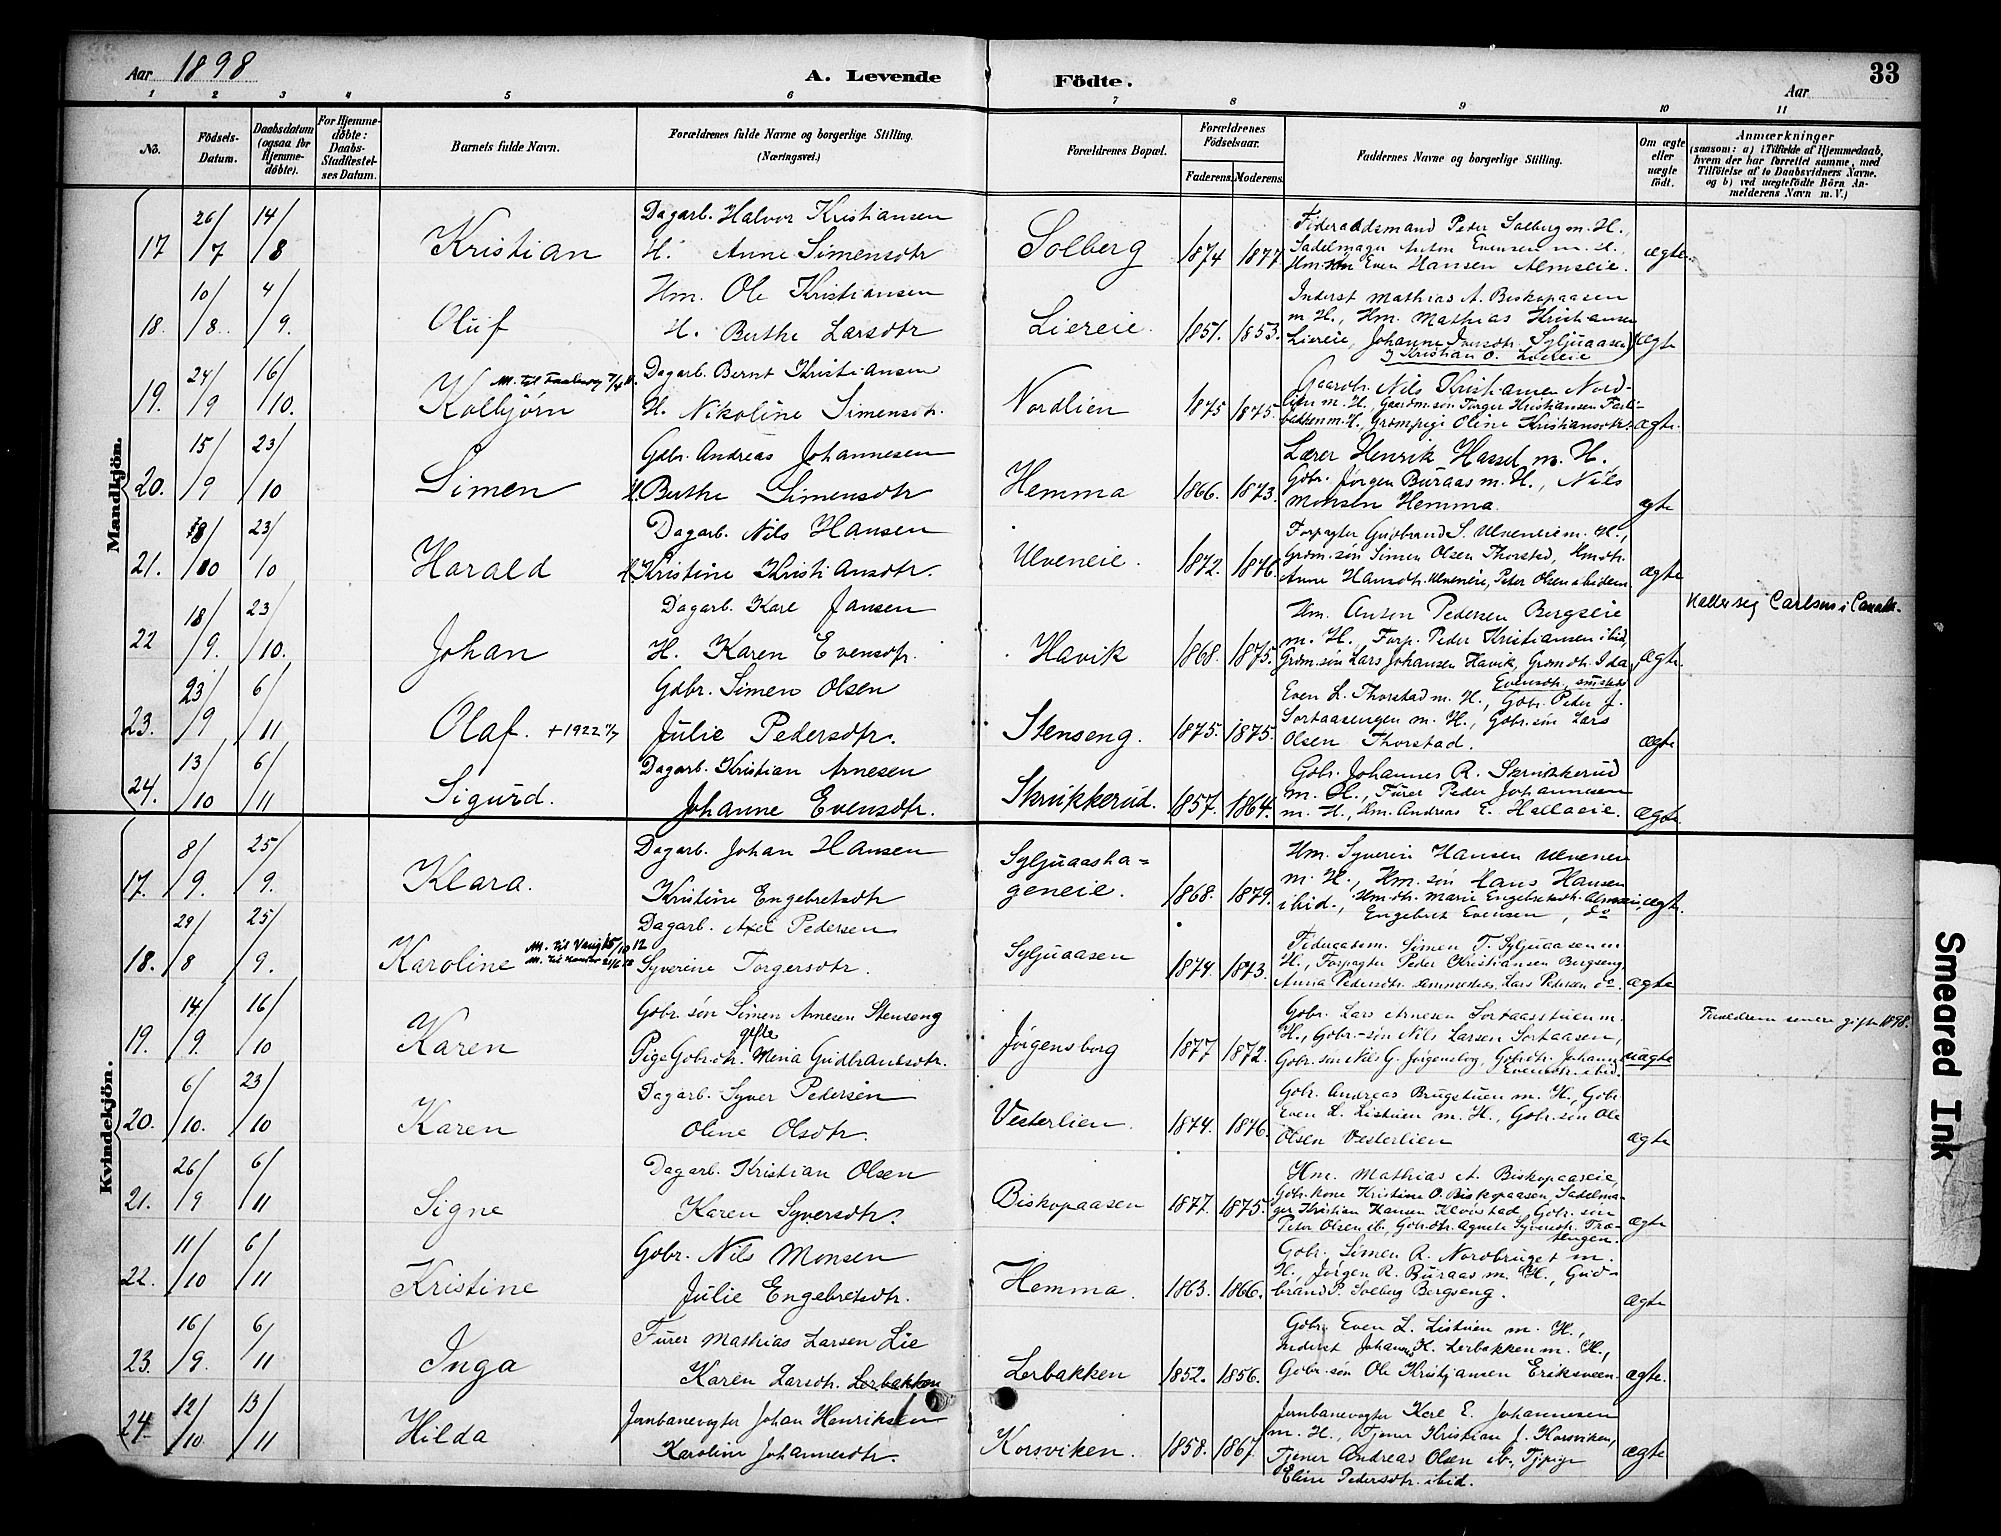 Aar 1898
A. Levende
Födte.
Aar
33
1 2 3 4 5 6 7 8 9 10 11
No.
Födsels-Datum.
Daabsdatum (ogsaa for Hjemme-döbte).
For Hjemme-döbte: Daabs-Stadfæstel-ses Datum.
Barnets fulde Navn.
Forældrenes fulde Navne og borgerlige Stilling.
(Næringsvei.)
Forældrenes Bopæl.
Forældrenes Födselsaar.
Faderens. Moderens.
Faddernes Navne og borgerlige Stilling.
Om ægte eller uægte födt.
Anmærkninger
(saasom: a) i Tilfælde af Hjemmedaab, hvem der har forrettet samme, med Tilföielse af to Daabsvidners Navne, og b) ved uægtefödte Börn An-melderens Navn m. V.)
Mandkjön.
17 26/7 14/8 Kristian
Dagarb. Halvor Kristiansen
H. Anne Simensdtr
Solberg 1874 1877
Föderaadsmand Peder Solberg m. H.,
Sadelmager Anton Evensen m. H.,
Hm. søn Even Hansen Almseie.
ægte
18. 10/8. 4/9. Oluf
Hm. Ole Kristiansen
H. Berthe Larsdtr
Liereie. 1851. 1853.
Inderst Mathias A. Biskopaasen
m. H., Hm. Mathias Kristiansen
Liereie, Johanne Iversdtr. Syljuaasen
J Kristian O. Liereie
ægte
19. 24/9 16/10. Kolbjørn
Dagarb. Bernt Kristiansen
H. Nikoline Simensdtr.
Nordlien 1875 1875.
Gaardbr. Nils Kristiansen Nord-
lien m. H., Gaardm.søn Torger Kristiansen
m. H., Grdmpige Oline Kristiansdtr.
ægte.
20. 15/9 23/10 Simen
Gdbr. Andreas Johannesen
H. Berthe Simensdtr
Hemma 1866. 1873.
Lærer Henrik Hassel m. H.
Gdbr. Jørgen Buraas m. H., Nils
Monsen Hemma.
ægte
21. 23/10 Harald
Dagarb. Nils Hansen
H. Kristine Kristiansdtr.
Ulveneie. 1872. 1876.
Forpagter Gudbrand S. Ulveneie m. H.,
Grdm. søn Simen Olsen Thorstad, Hmdtr.
Anne Hansdtr. Ulveneie, Peter Olsen ibidem
ægte
22 18/9. 23/10. Johan
Dagarb. Karl Jansen
H. Karen Evensdtr.
Havik 1868. 1875.
Hm. Anton Pedersen Bergseie
m. H., Forp. Peder Kristiansen ibid,
Grdm. søn Lars Johansen Havik, Grdmdtr. Ida
Evensdtr., smstds
ægte.
Kaller seg Carlsen i Canada.
23. 23/9 6/11 Olaf. +1922
Gdbr. Simen Olsen
Julie Pedersdtr.
Stenseng. 1875. 1875.
Even L. Thorstad m. H., Gdbr. Peder J.
Sortaasengen m. H., Gdbr. søn Lars
Olsen Thorstad.
ægte
24. 13/10 6/11 Sigurd.
Dagarb. Kristian Arnesen
Johanne Evensdtr.
Skrukkerud. 1857. 1864.
Gdbr. Johannes R. Skrukkerud
m. H., Furer Peder Johannesen
m. H., Hm. Andreas E. Hallaeie.
ægte.
Kvindekjön.
17. 8/9. 25/9. Klara.
Dagarb. Johan Hansen
Kristine Engebretsdtr
Syljuaasha-
geneie. 1868. 1879.
Hm. Syverin Hansen Ulveneie
m. H., Hm. søn Hans Hansen
ibid., Hm. dtr. Marie Engebretsdtr. Almseie,
Engebret Evensen, do
ægte.
18. 29/8 25/9. Karoline
Dagarb. Axel Pedersen
Syverine Torgersdtr.
Syljuaasen 1874. 1873.
Föderaasm. Simen T. Syljuaasen m.
H., Forpagter Peder Christiansen Bergseng,
Anna Pedersdtr. sammesteds, Lars Pedersen do
ægte
19. 14/9. 16/10 Karen
Gdbr. søn Simen Arnesen Stenseng
gifte
Pige Gdbrdtr. Maria Gudbrandsdtr.
Jørgensborg 1877 1872.
Gdbr. Lars Arnesen Sortaasstuen m.
H., Gdbr.-søn Nils Larsen Sortaasen,
Gdbr. søn Nils G. Jørgensborg, Gdbrdtr. Johanne
Evensdtr. ibid.
uægte
Forældrene senere gifte 1898.
20. 6/10. 23/10 Karen
Dagarb. Syver Pedersen
Oline Olsdtr.
Vesterlien. 1874. 1876.
Gdbr. Andreas Brugstuen m. H., Gdbr.
Even L. Listuen m. H., Gdbr. søn Ole
Olsen Vesterlien
ægte
21. 26/9 6/11 Signe
Dagarb. Kristian Olsen
Karen Syversdtr.
Biskopaasen 1877. 1875.
Hm. Mathias A. Biskopaaseie,
Gdbr. kone Kristine O. Biskopaasen, Sadelma-
ger Kristian Hansen Kloverstad, Gdbr. søn
Peter Olsen ib. Gdbrdtr. Agnete Syversdtr. Tra-
tengen.
ægte
22. 11/10 6/11 Kristine
Gdbr. Nils Monsen
Julie Engebretsdtr.
Hemma. 1863. 1866.
Gdbr. Simen R. Nordbruget m.
H., Jørgen R. Buraas m. H., Gud-
brand P. Solberg Bergseng.
ægte
23. 16/9. 6/11 Inga
Furer Mathias Larsen Lie
Karen Larsdtr. Lerbakken
Lerbakken 1852. 1856.
Gdbr. Even L. Listuen m. H.,
Inderst Johannes H. Lerbakken m. H.,
Gdbr. søn Ole Kristjansen Eriksveen.
ægte.
24 12/10. 13/11 Hilda
Jernbanevogter Johan Henriksen
Karoline Johannesdtr.
Korsviken. 1858. 1867
Jernbanevogter Karl E. Johannesen
m. H., Tjener Kristian J. Korsviken,
Tjener Andreas Olsen ib., Tjpige
Eline Pedersdtr. ibid.
ægte
Smeared Ink